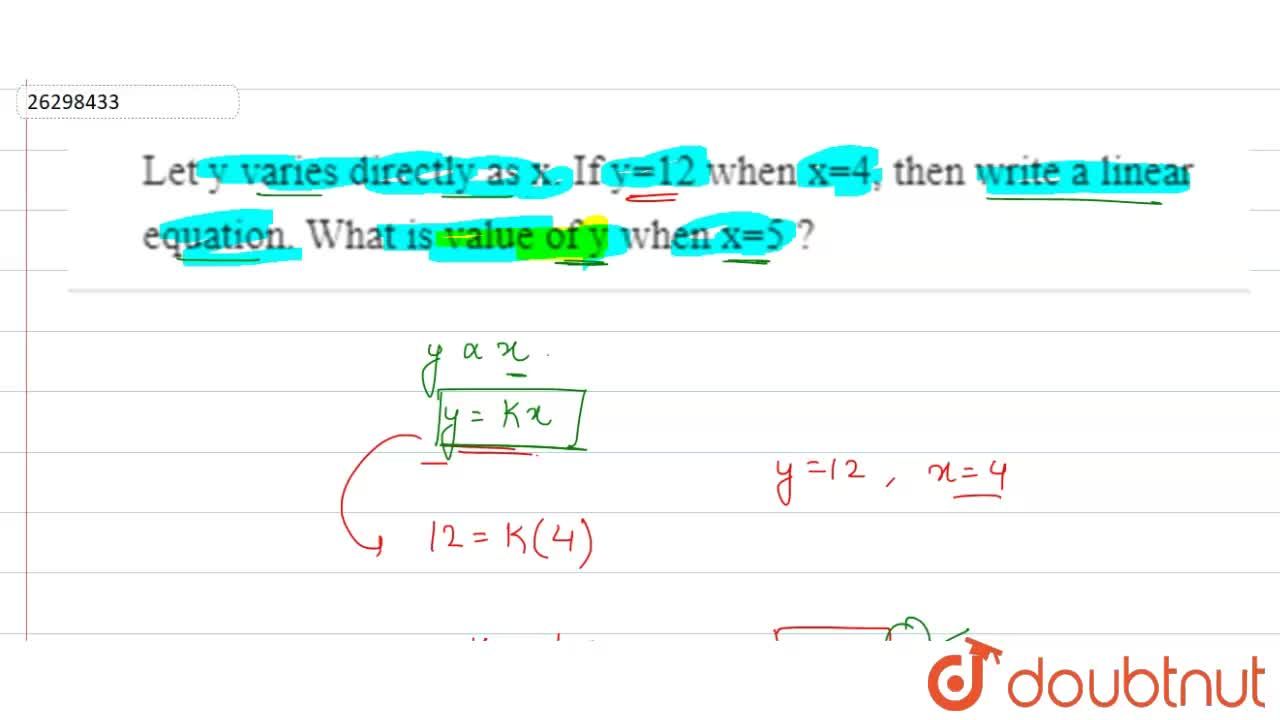 26298433
Let y varies directly as x. If y=12 when x=4, then write a linear
equation. What is value of y when x=5 ?
y α x .
y = Kx
y =12 , x=4
12 = K(4)
doubtnut